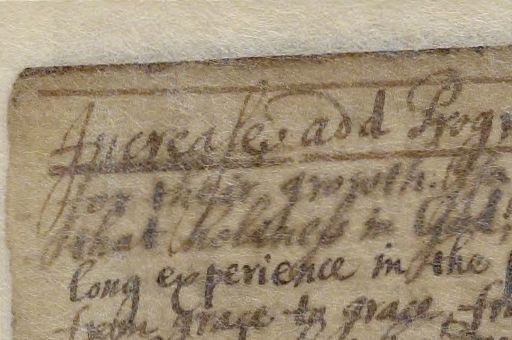 Increase and Progr
for their growth.
that holiness in God
long experience in the
from grace to grace, fr